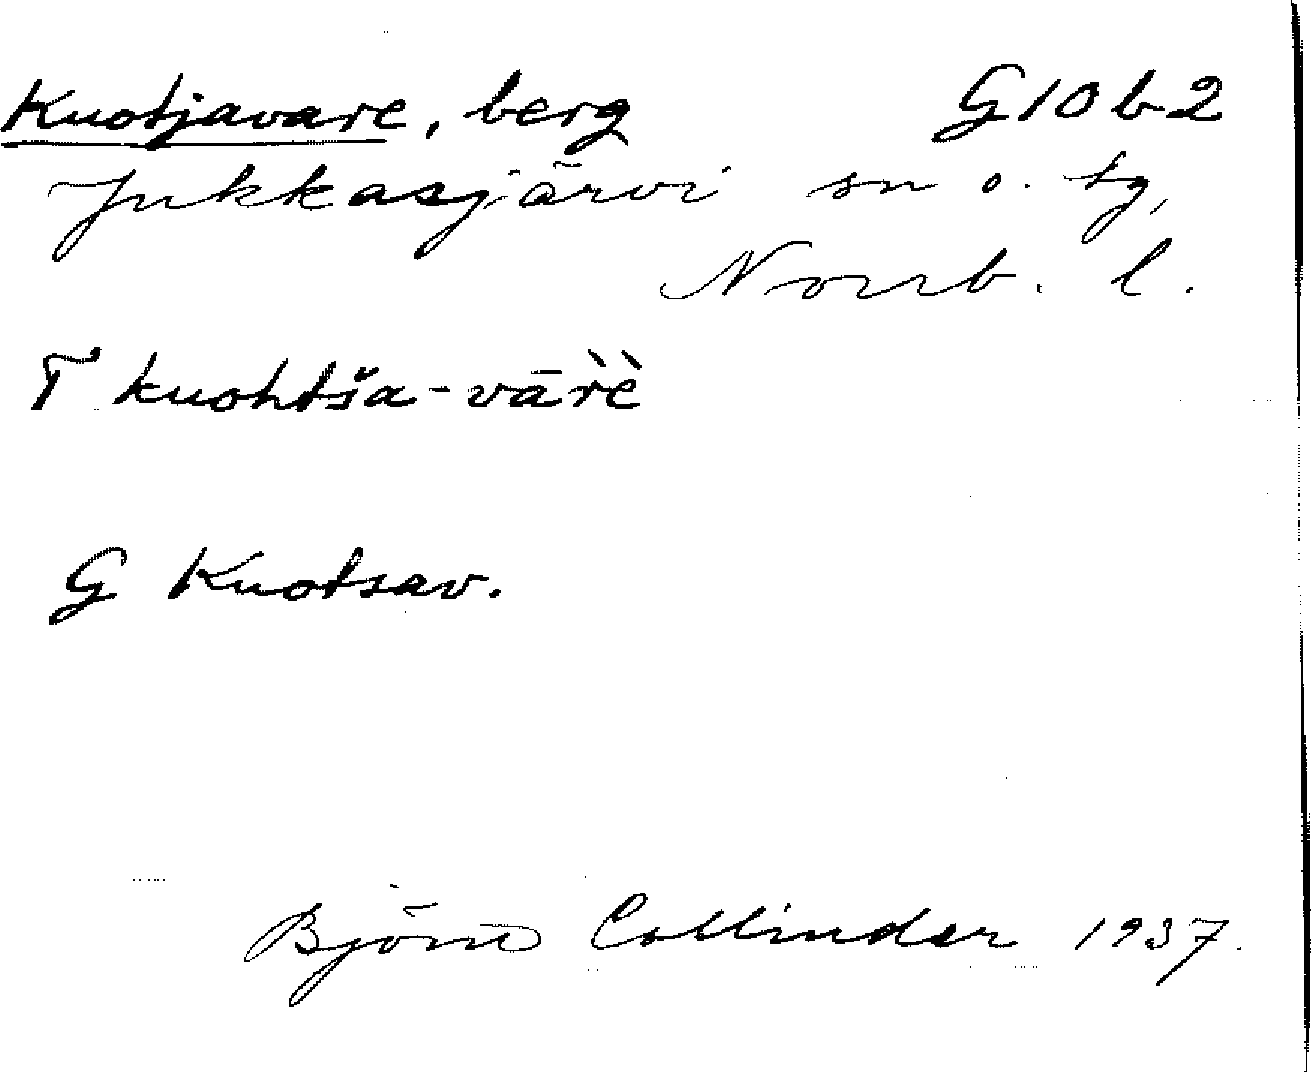 Kuotjavare, berg G10b2
Jukkasjärvi sn o. tg,
Norrb. l.
T kuohtša-vārˋeˋ
G Kuotsav.
Björn Collinder 1937.